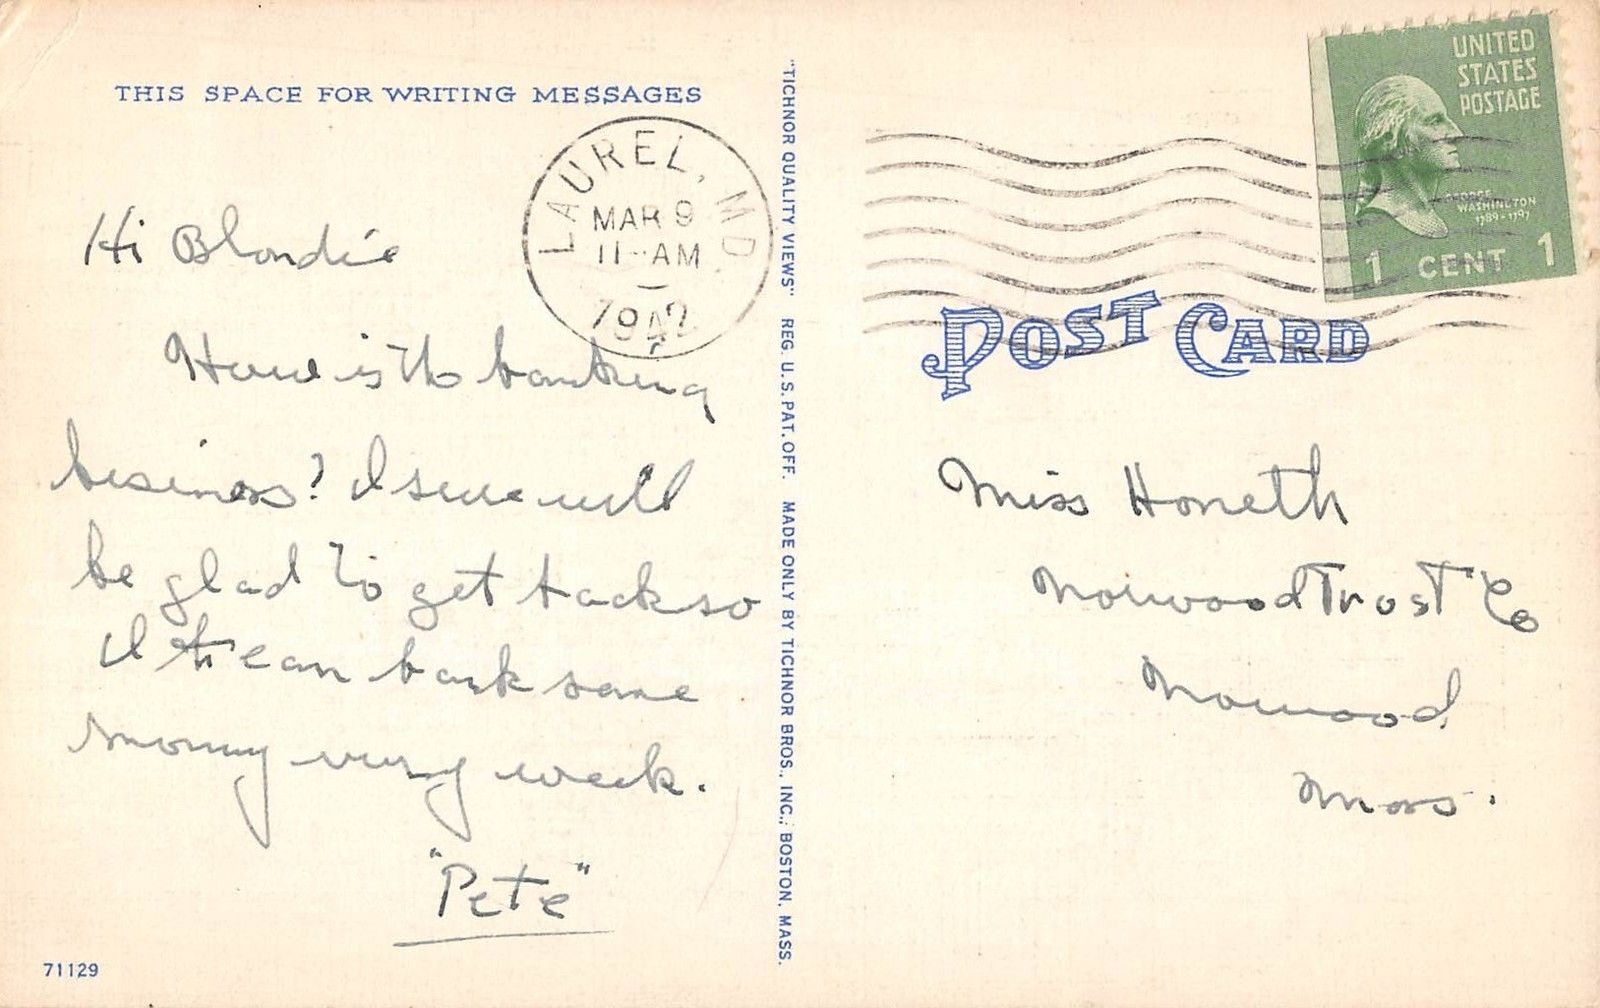 THIS SPACE FOR WRITING MESSAGES
LAUREL, MD.
MAR 9
11-AM
1942
Hi Blondie
How is the banking
business? I sure will
be glad to get back so
I can bank some
money every week.
"Pete"
71129
"TICHNOR QUALITY VIEWS" REG. U.S. PAT. OFF. MADE ONLY BY TICHNOR BROS., INC., BOSTON, MASS.
UNITED
STATES
POSTAGE
GEORGE
WASHINGTON
1789-1797
1 CENT 1
POST CARD
Miss Honeth
Norwood Trust Co
Norwood
Mass.